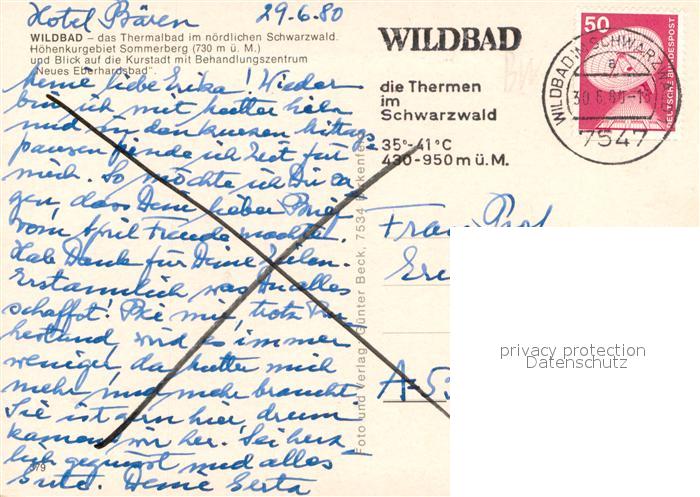 Hotel Bären 29.6.80
WILDBAD – das Thermalbad im nördlichen Schwarzwald.
Höhenkurgebiet Sommerberg (730 m ü. M.)
und Blick auf die Kurstadt mit Behandlungszentrum
"Neues Eberhardsbad".
Meine liebe Erika! Wieder
bin ich mit Mutter hier
und in den kurzen Mittags
pausen finde ich Zeit für
mich. So möchte ich Dir sa
gen, dass Dein lieber Brief
vom April Freude machte.
Hab Dank für Deine Zeilen.
Erstaunlich was Du alles
schaffst! Bei mir, trotz
wird es immer
weniger, da Mutter mich
mehr und mehr braucht.
Sie ist gern hier, drum
kamen wir her. Sei herz
lich gegrüsst und alles
Gute. Deine Gerta
379
Foto und Verlag Günter Beck, 7534 Birkenfeld
WILDBAD
die Thermen
im
Schwarzwald
35°-41°C
430-950 m ü. M.
50
DEUTSCHE BUNDESPOST
WILDBAD IM SCHWARZW
a
30.6.80-18
7547
Frau Prof
A-5
privacy protection
Datenschutz